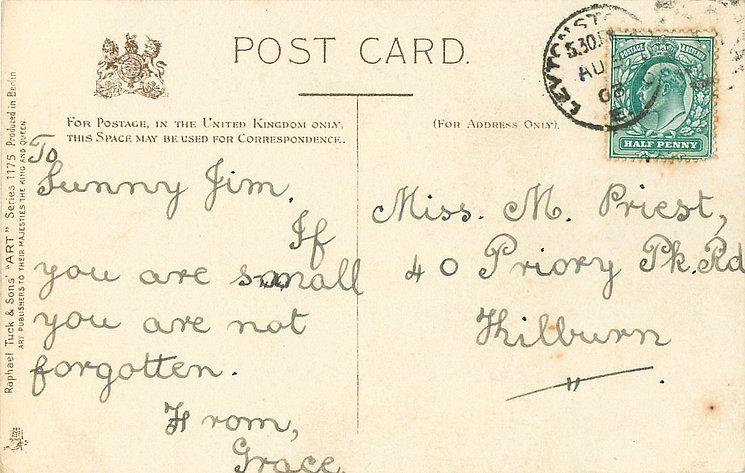 POST CARD.
FOR POSTAGE, IN THE UNITED KINGDOM ONLY,
THIS SPACE MAY BE USED FOR CORRESPONDENCE.
(FOR ADDRESS ONLY).
To
Sunny Jim.
If
you are small
you are not
forgotten.
From,
Grace.
Miss. M. Priest,
40 Priory Pk. Rd
Kilburn
POSTAGE
HALF PENNY
LEYTONST
5.30 P
AU
Raphael Tuck & Sons' "ART" Series 1175 Produced in Berlin
ART PUBLISHERS TO THEIR MAJESTIES THE KING AND QUEEN